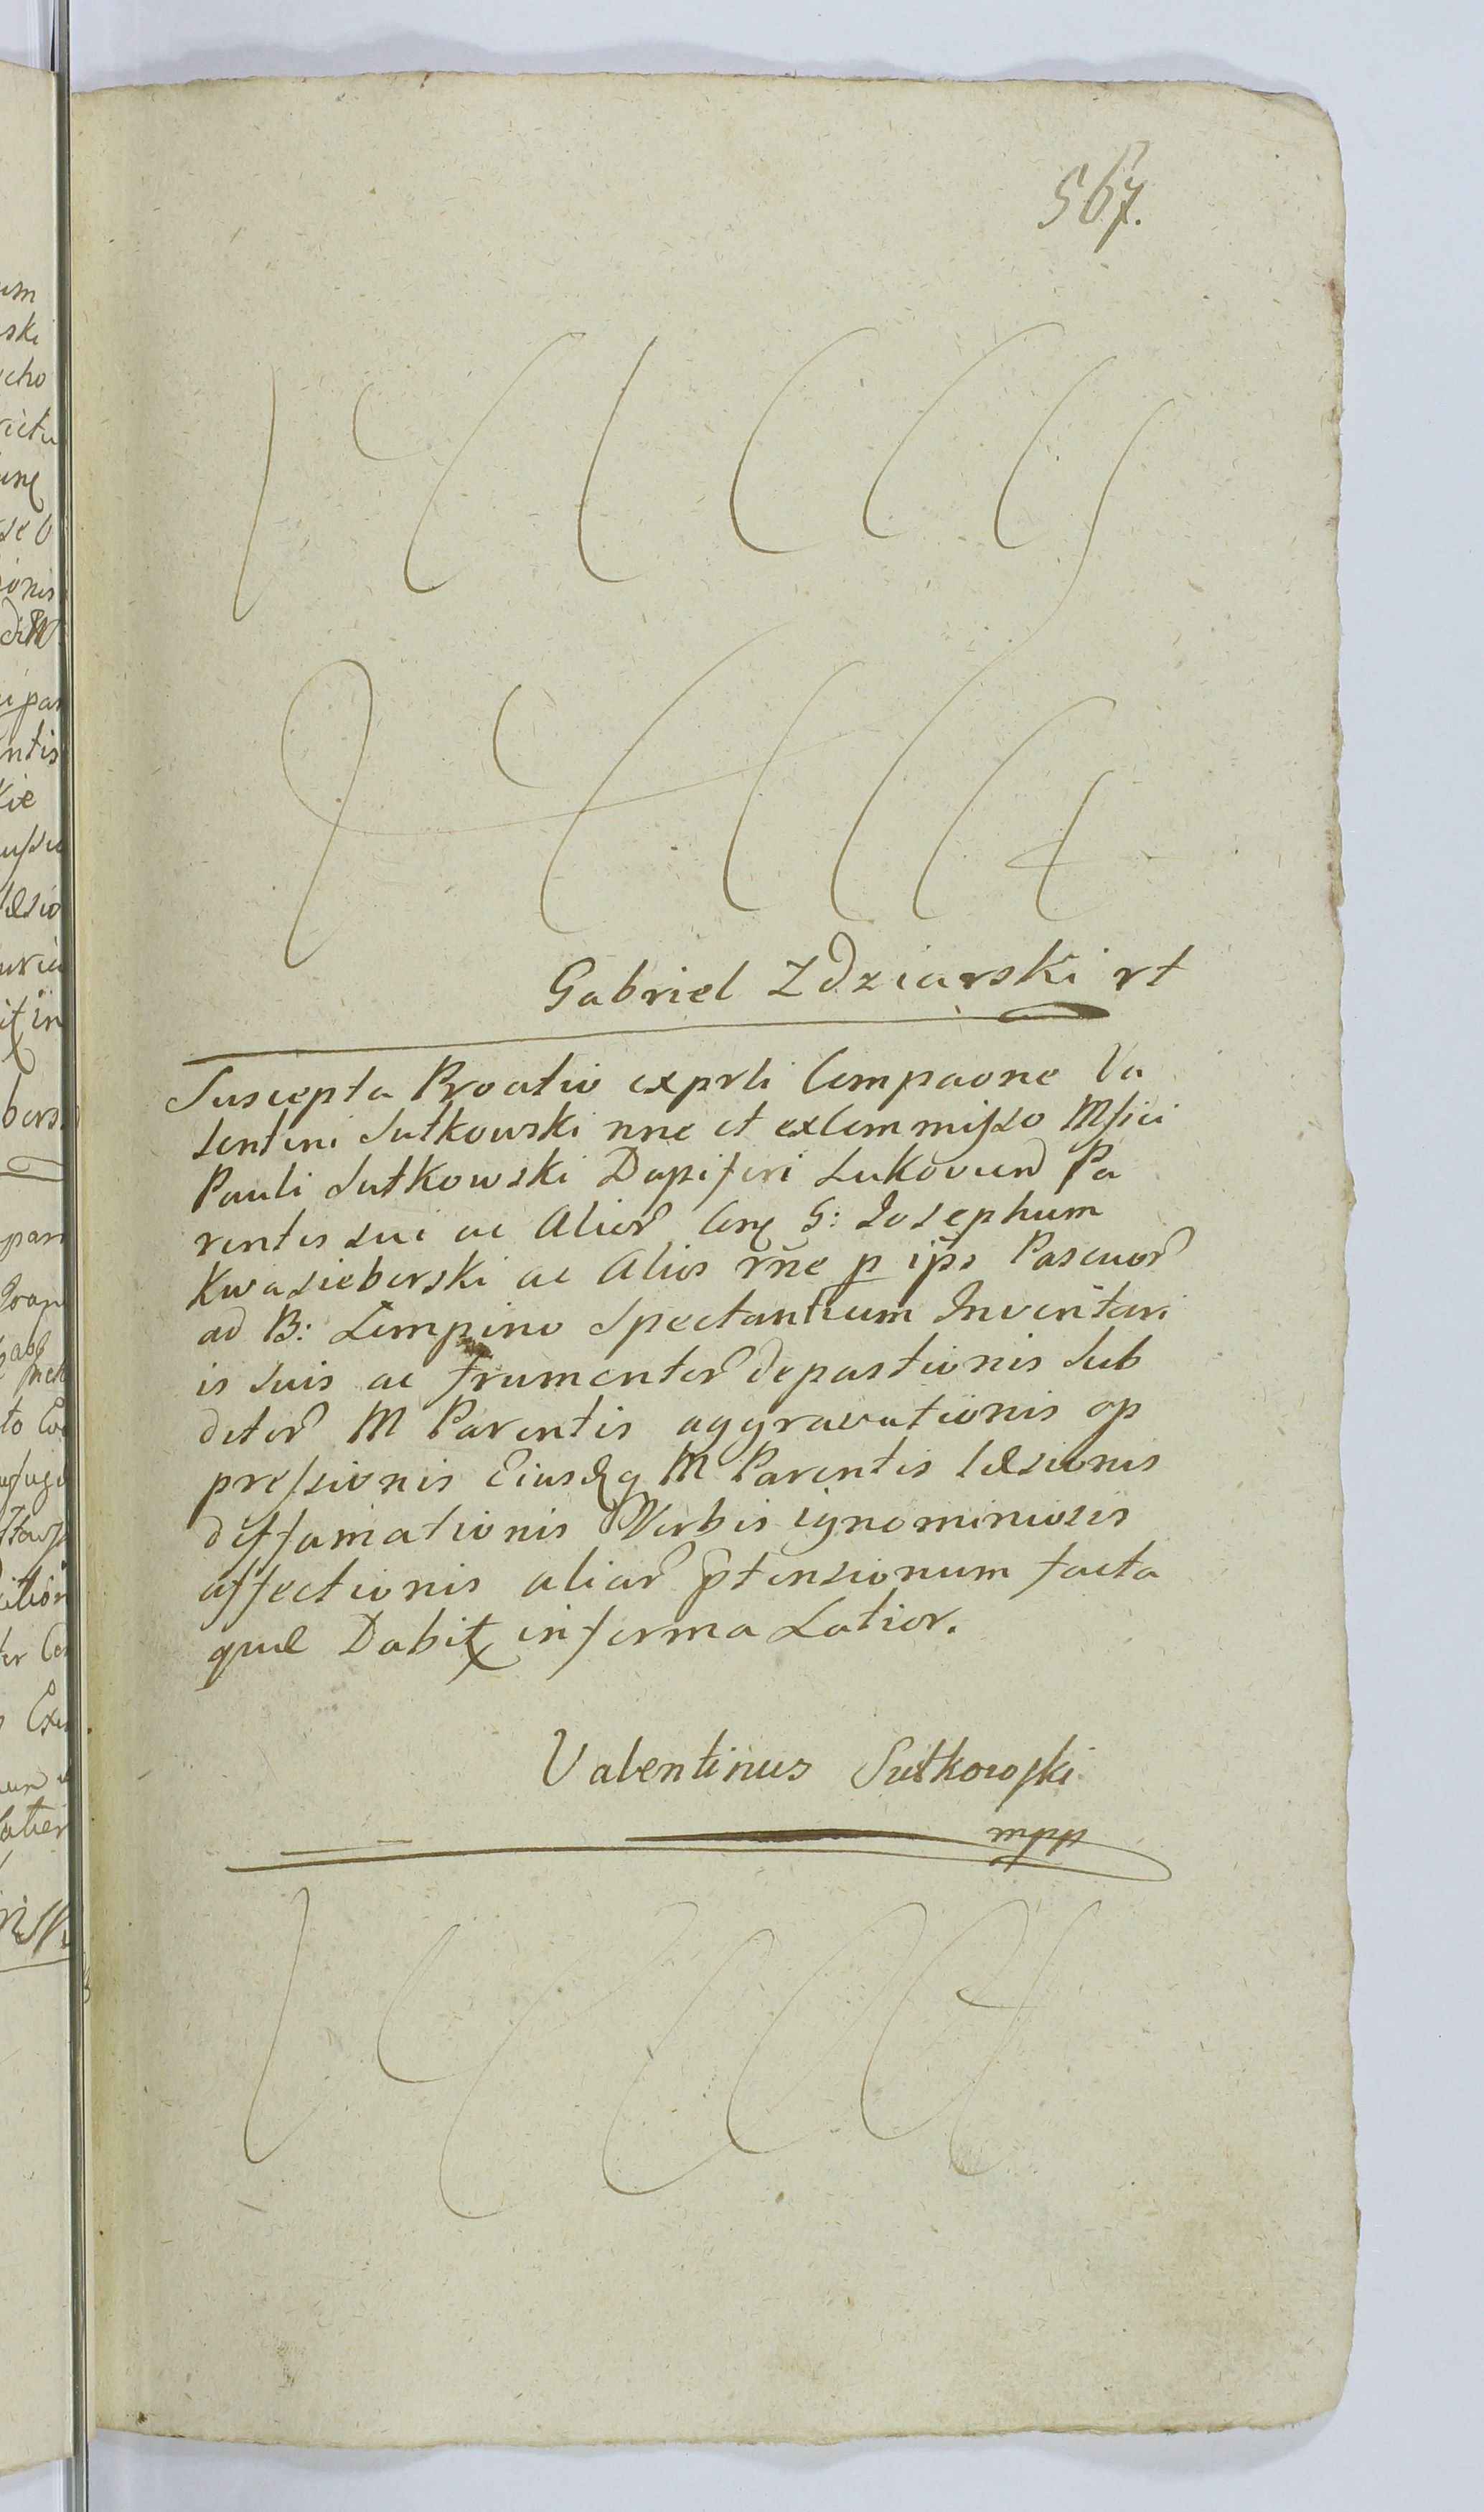 567.
Gabriel Zdziarski rt
Suscepta Proatio exprli Compaone Va
lentini Sutkowski nne et ex Commisso Mfici
Pauli Sutkowski Dapiferi Lukovien Pa
rentis sui ac Alior Con G: Josephum
Kwasieborski ac Alios rne p ips Pascuor
ad B: Lempino Spectantium Inventari
is suis ac frumentor depastionis Sub
ditor M Parentis aggravationis op
pressionis Eiusdq M Parentis læsionis
diffamationis Verbis ignominiosis
affectionis aliar ptensionum facta
quæ Dabit in forma Latior.
Valentinus Sutkowski
mpp